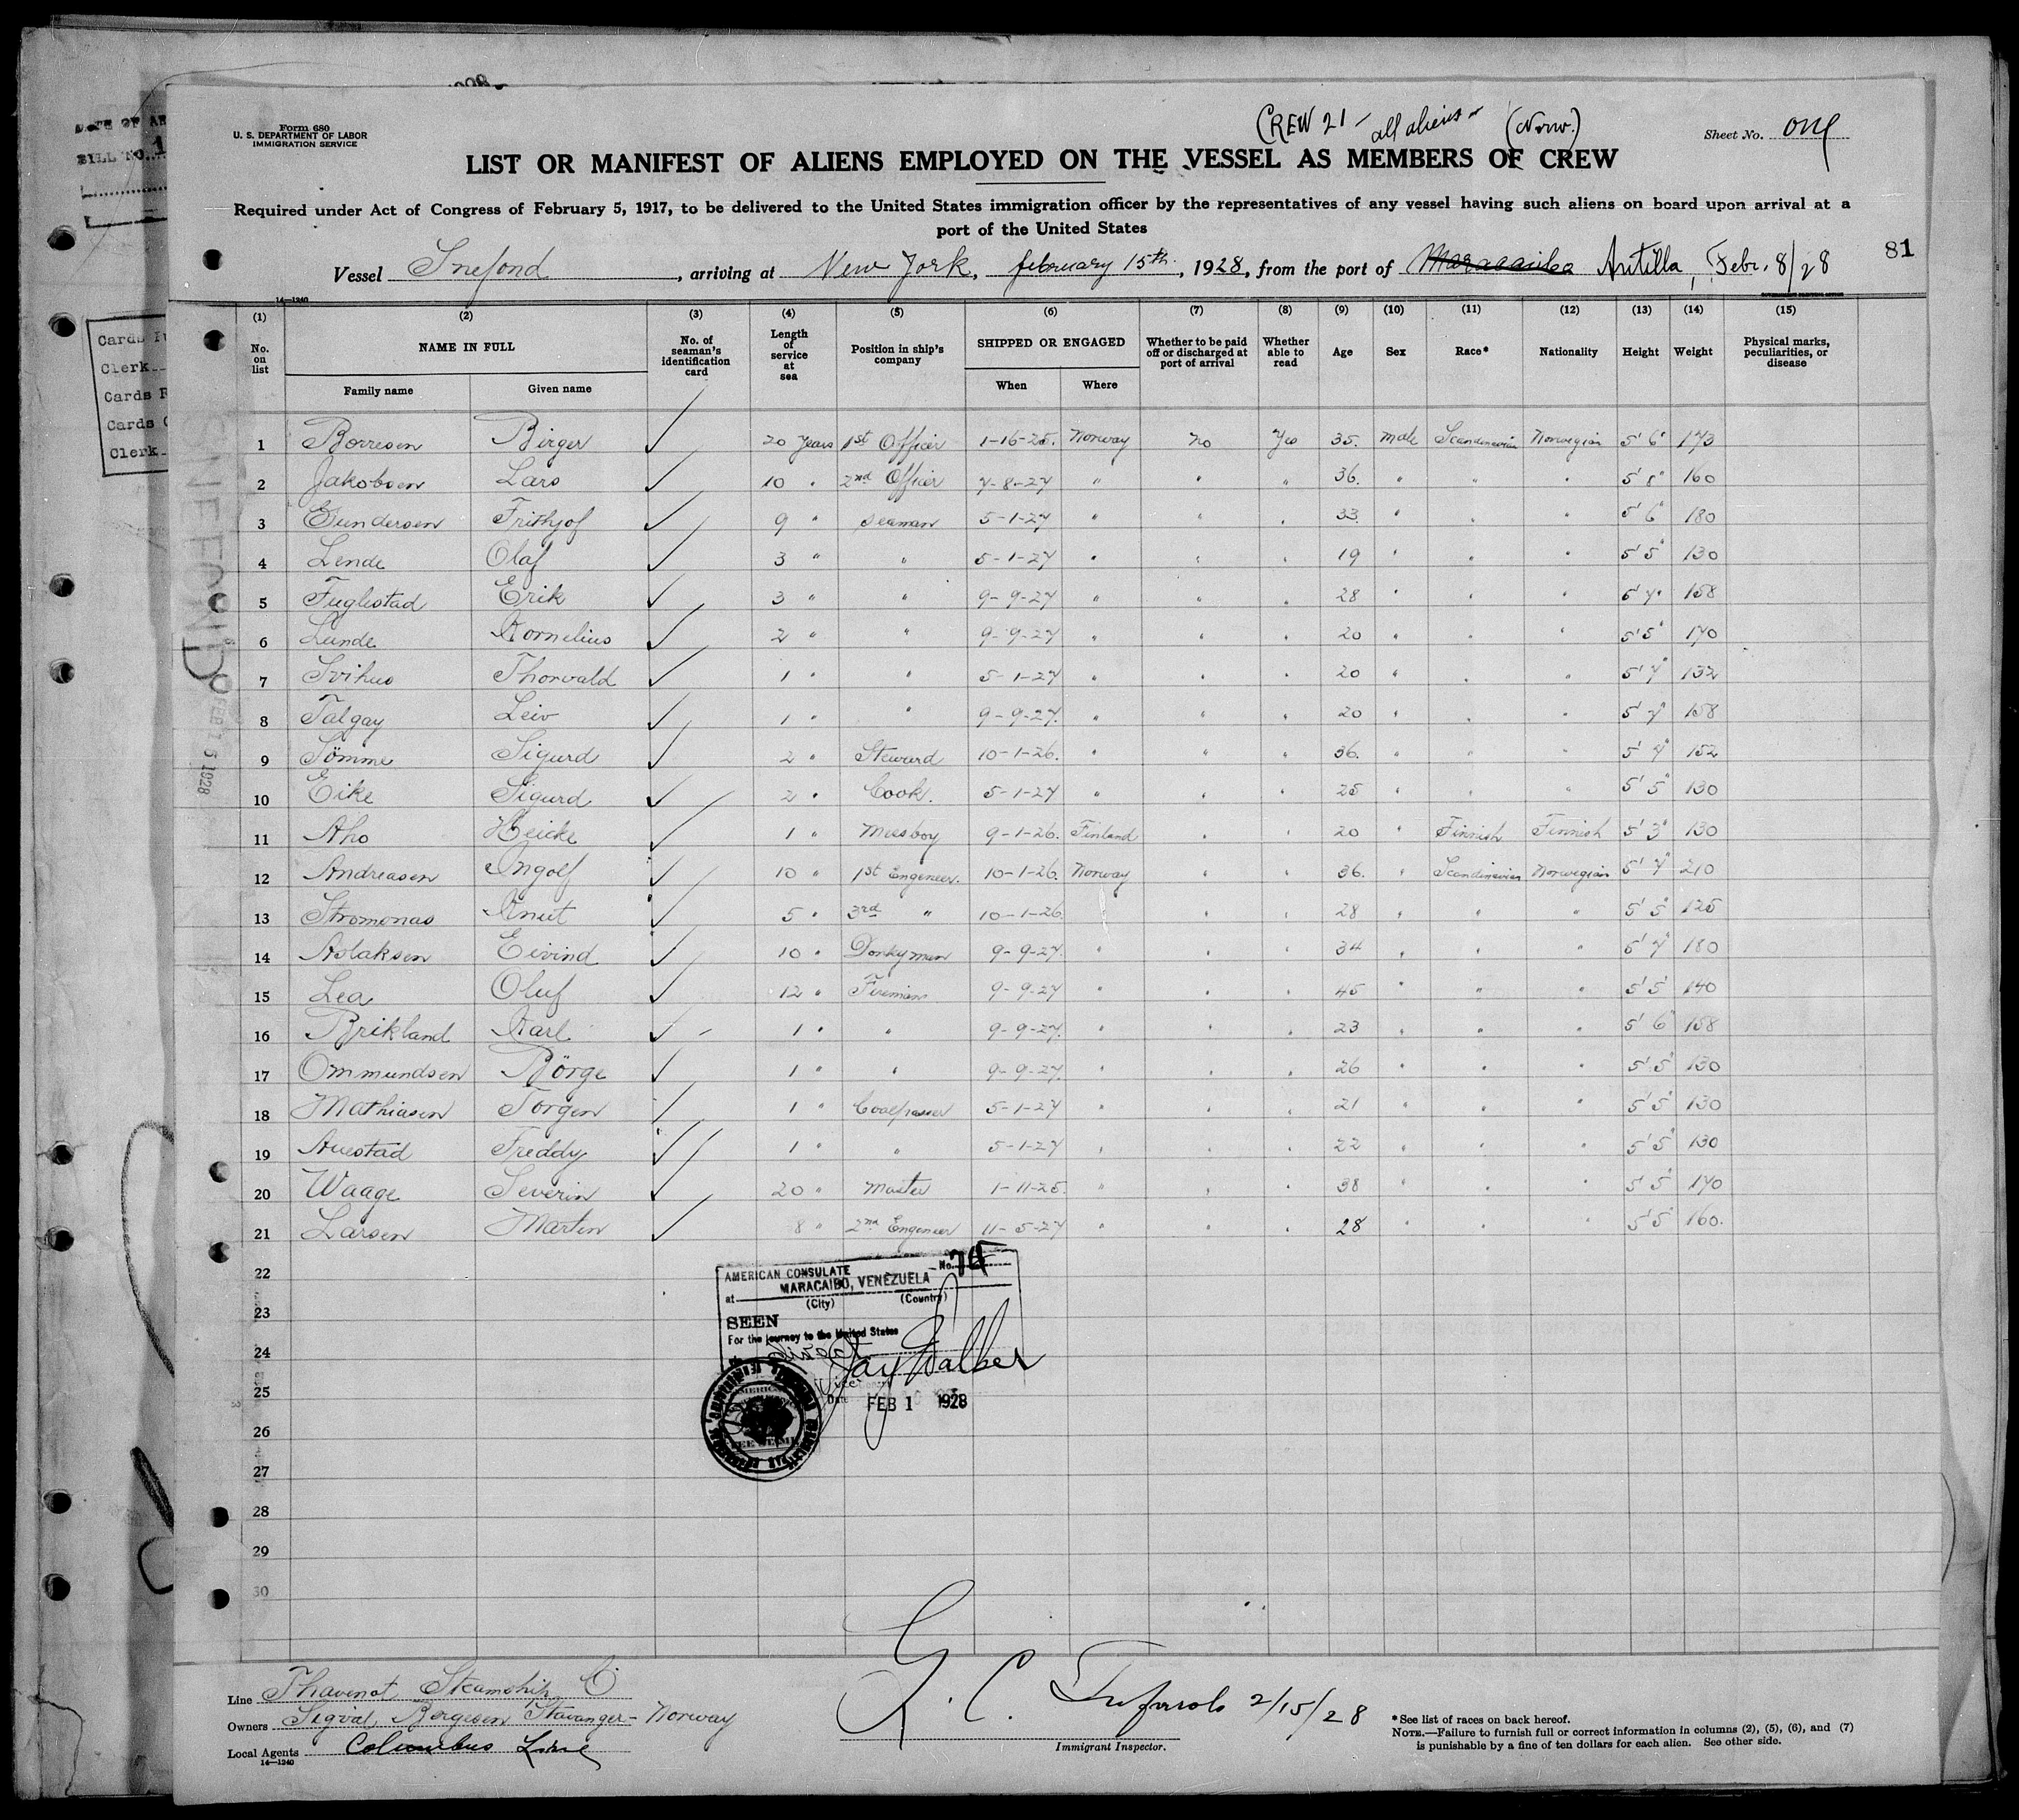 Form 680
U. S. DEPARTMENT OF LABOR
IMMIGRATION SERVICE
CREW 21 - all aliens - (Norw.)
Sheet No. one
LIST OR MANIFEST OF ALIENS EMPLOYED ON THE VESSEL AS MEMBERS OF CREW
Required under Act of Congress of February 5, 1917, to be delivered to the United States immigration officer by the representatives of any vessel having such aliens on board upon arrival at a
port of the United States
81
Vessel Snefond, arriving at New York, february 15th, 1928, from the port of Maracaibo Antilla, Febr. 8/28
14—1240
(1) (2) (3) (4) (5) (6) (7) (8) (9) (10) (11) (12) (13) (14) (15)
No. on list NAME IN FULL Family name Given name No. of seaman's identification card Length of service at sea Position in ship's company SHIPPED OR ENGAGED When Where Whether to be paid off or discharged at port of arrival Whether able to read Age Sex Race* Nationality Height Weight Physical marks, peculiarities, or disease
1 Borresen Birger 20 years 1st Officer 1-16-25. Norway No Yes 35. male Scandinavian Norwegian 5' 6" 173
2 Jakobsen Lars 10 " 2nd Officer 7-8-27 " " " 36. " " " 160
3 Gundersen Frithjof 9 " Seaman 5-1-27 " " " 33. " " " 5' 6" 180
4 Lende Olaf 3 " " 5-1-27 " " " 19 " " " 5' 5" 130
5 Fuglestad Erik 3 " " 9-9-27 " " " 28 " " " 158
6 Lunde Kornelius 2 " " 9-9-27 " " " 20 " " " 5' 5" 170
7 Svihus Thorvald 1 " " 5-1-27 " " " 20 " " " 5' 7" 132
8 Talgay Leiv 1 " " 9-9-27. " " " 20 " " " 5' 7" 158
9 Sömme Sigurd 2 " Steward 10-1-26. " " " 36. " " " 5' 7" 152
10 Eike Sigurd 2 " Cook. 5-1-27 " " " 25 " " " 5' 5" 130
11 Aho Heicke 1 " Messboy 9-1-26. Finland " " 20 " Finnish Finnish 5' 3" 130
12 Andreasen Ingolf 10 " 1st Engeneer. 10-1-26. Norway " " 36. " Scandinavian Norwegian 5' 7" 210
13 Stromonas Knut 5 " 3rd " 10-1-26. " " 28 " " " 5' 5" 125
14 Aslaksen Eivind 10 " Donkyman 9-9-27. " " " 34 " " " 5' 7" 180
15 Lea Oluf 12 " Fireman 9-9-27 " " " 45 " " " 5' 5" 140
16 Brikland Karl 1 " " 9-9-27. " " " 23 " " " 5' 6" 158
17 Ommundsen Börge 1 " " 9-9-27. " " " 26 " " " 5' 5" 130
18 Mathiasen Torgen 1 " Coalpasser 5-1-27 " " " 21 " " " 5' 5" 130
19 Auestad Freddy 1 " " 5-1-27 " " " 22 " " " 5' 5" 130
20 Waage Severin 20 " Master 1-11-25. " " " 38 " " " 5' 5" 170
21 Larsen Martin 8 " 2nd Engeneer 11-5-27 " " " 28 " " " 5' 5" 160.
22
23
24
25
26
27
28
29
30
AMERICAN CONSULATE No. 74
at MARACAIBO, VENEZUELA
(City) (Country)
SEEN
For the journey to the United States
Jay Walker
Vice
Date FEB 1 1928
FEB 15 1928
Cards
Clerk
Cards
Cards
Clerk
Line Thavenot Steamship Co
Owners Sigval Bergesen Stavanger - Norway
Local Agents Columbus Line
14—1240
G. C. 2/15/28
Immigrant Inspector.
*See list of races on back hereof.
NOTE.—Failure to furnish full or correct information in columns (2), (5), (6), and (7)
is punishable by a fine of ten dollars for each alien. See other side.